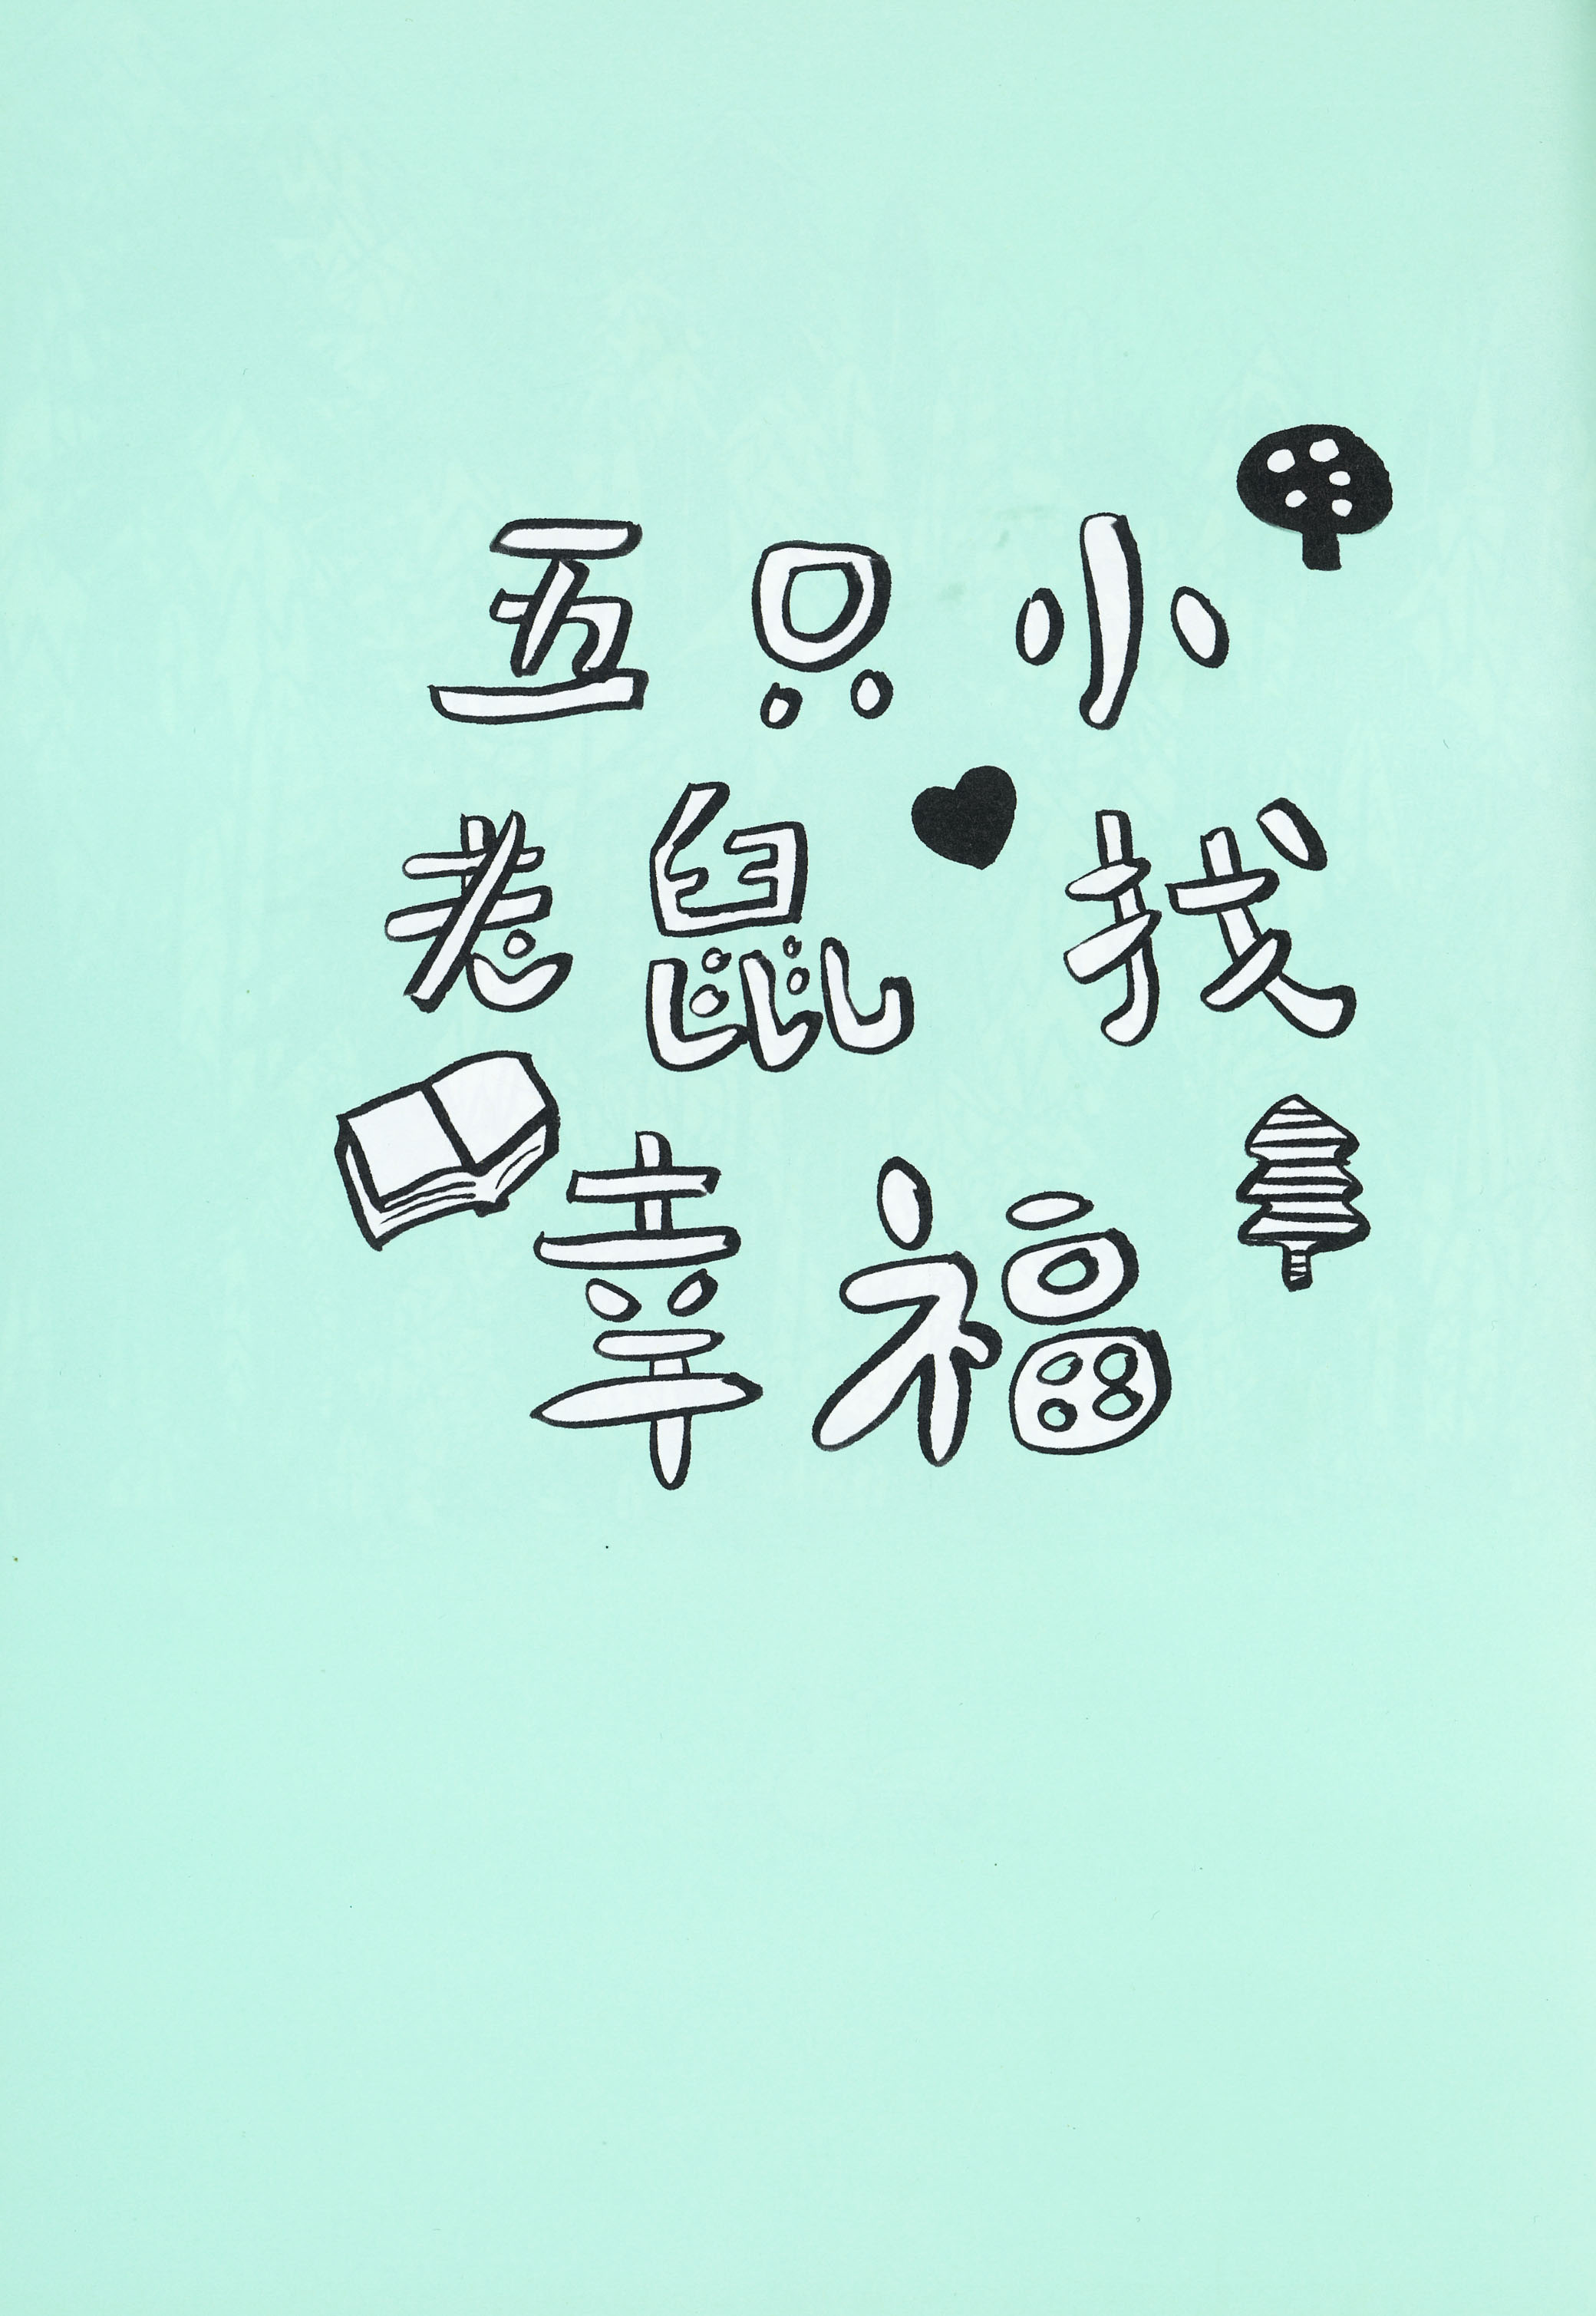 五只小
老鼠找
幸福